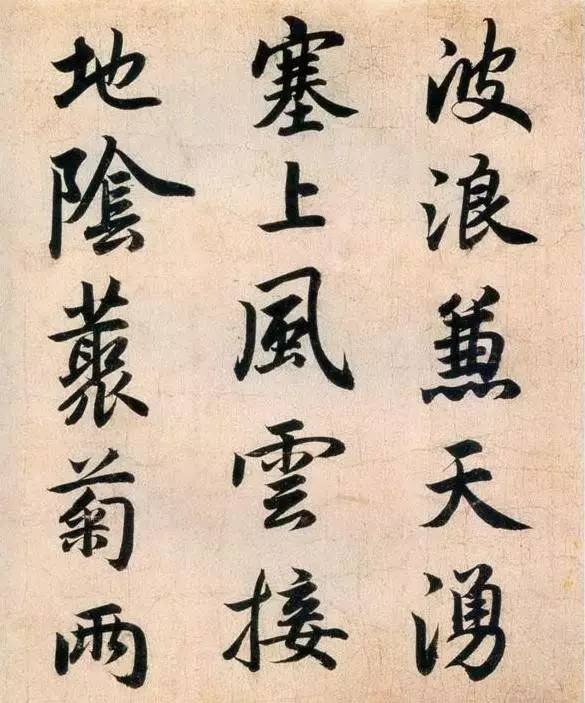 波浪兼天湧
塞上風雲接
地陰藂菊兩